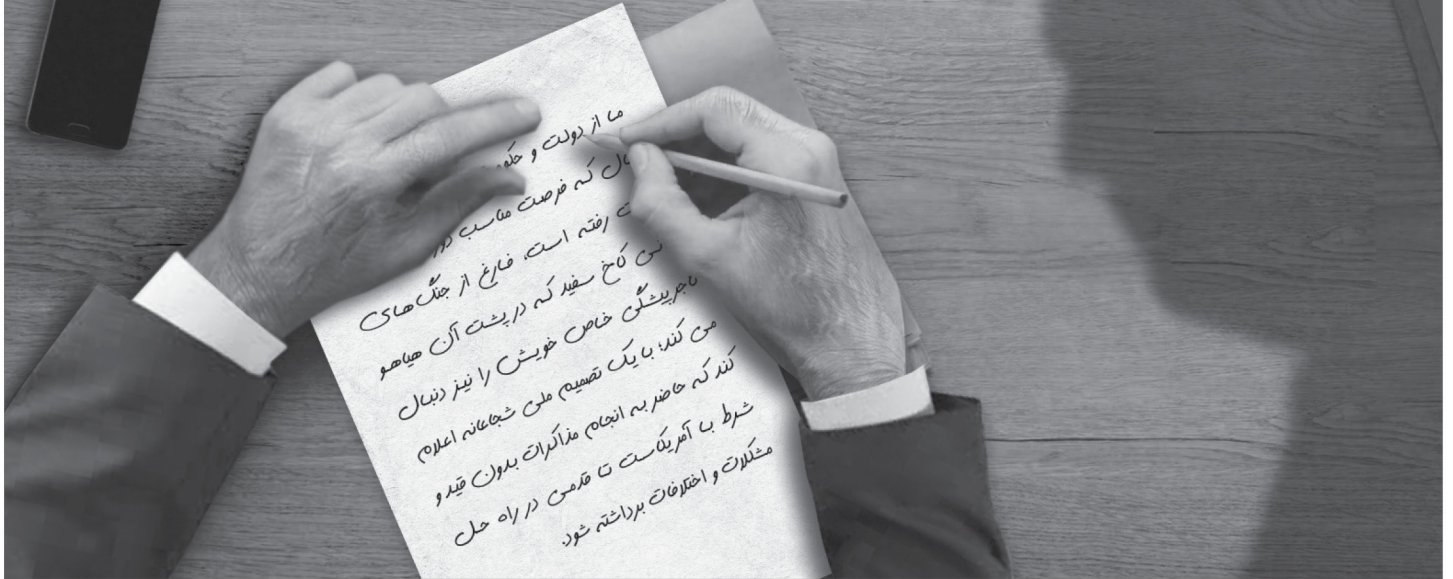 ما از دولت و
که فرصت مناسب
رفته است، فارغ از جنگ‌های
کاخ سفید که در پشت آن هیاهو
تاجرپیشگی خاص خویش را نیز دنبال
می کند؛ با یک تصمیم ملی شجاعانه اعلام
کند که حاضر به انجام مذاکرات بدون قید و
شرط با آمریکاست تا قدمی در راه حل
مشکلات و اختلافات برداشته شود.